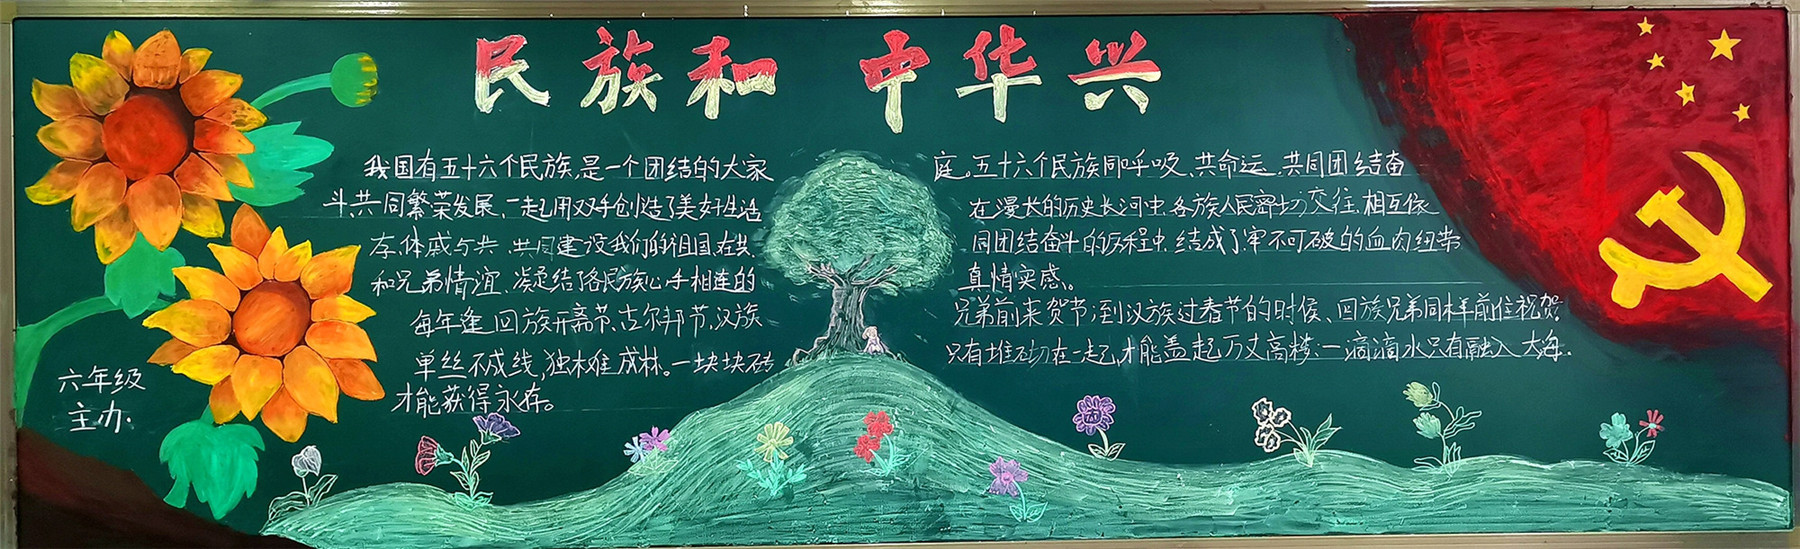 民族和 中华兴
我国有五十六个民族,是一个团结的大家庭。五十六个民族同呼吸、共命运、共同团结奋
斗,共同繁荣发展,一起用双手创造了美好生活在漫长的历史长河中,各族人民密切交往、相互依
存、休戚与共,共同建设我们的祖国,在共同团结奋斗的历程中,结成了牢不可破的血肉纽带
和兄弟情谊,凝结了各民族心手相连的真情实感。
每年逢回族开斋节、古尔邦节,汉族兄弟前来贺节;到汉族过春节的时候、回族兄弟同样前往祝贺。
单丝不成线,独木难成林。一块块砖只有堆砌在一起,才能盖起万丈高楼;一滴滴水只有融入大海,
才能获得永存。
六年级
主办.